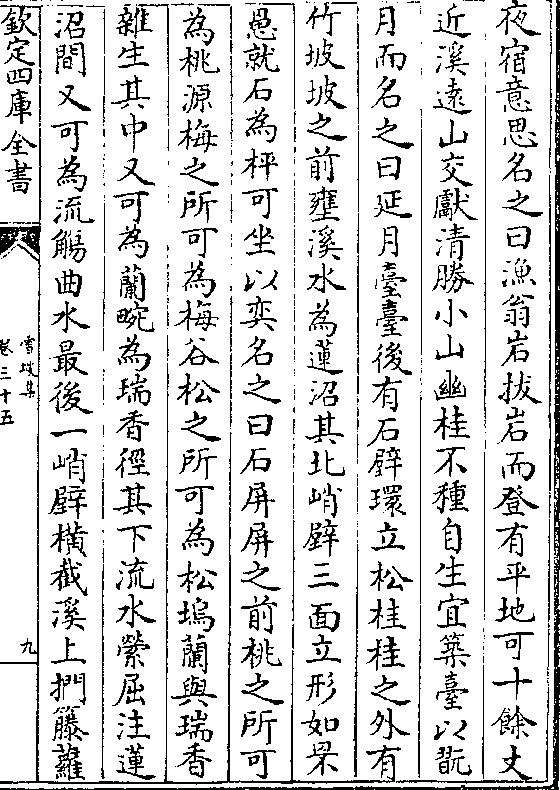 夜宿意思名之曰漁翁岩拔岩而登有平地可十餘丈
近溪遠山交獻清勝小山幽桂不種自生宜築臺以翫
月而名之曰延月臺臺後有石壁環立松桂桂之外有
竹坡坡之前壅溪水為蓮沼其北峭壁三面立形如罘
愚就石為枰可坐以奕名之曰石屏屏之前桃之所可
為桃源梅之所可為梅谷松之所可為松塢蘭與瑞香
雜生其中又可為蘭畹為瑞香徑其下流水縈屈注蓮
沼間又可為流觴曲水最後一峭壁橫截溪上捫籐蘿
欽定四庫全書
雪坡集
卷三十五
九